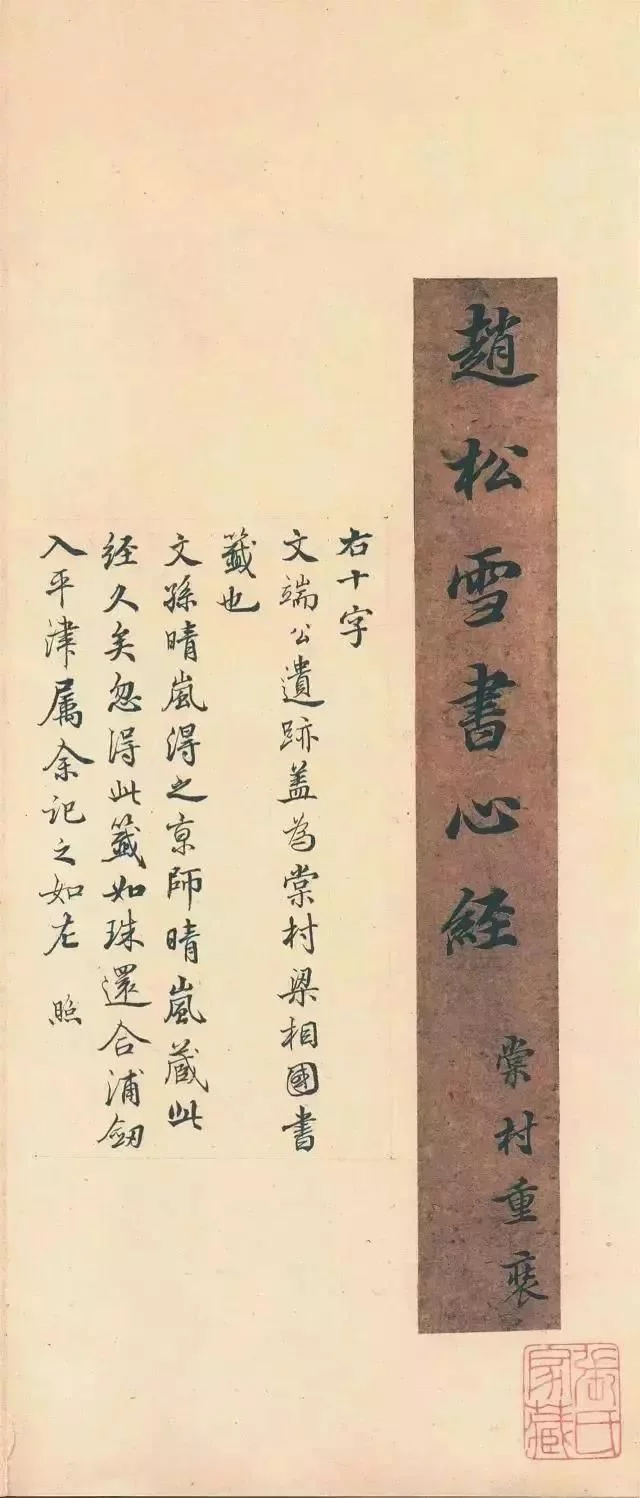 趙松雪書心経
棠村重裝
右十字
文端公遺跡盖為棠村梁相國書
籤也
文孫晴嵐得之京師晴嵐蔵此
経久矣忽得此籤如珠還合浦劒
入平津属余記之如左 照
張氏
家藏